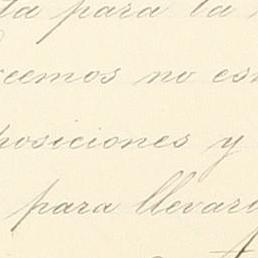 ta para la
creemos no es
posiciones y
para llevar